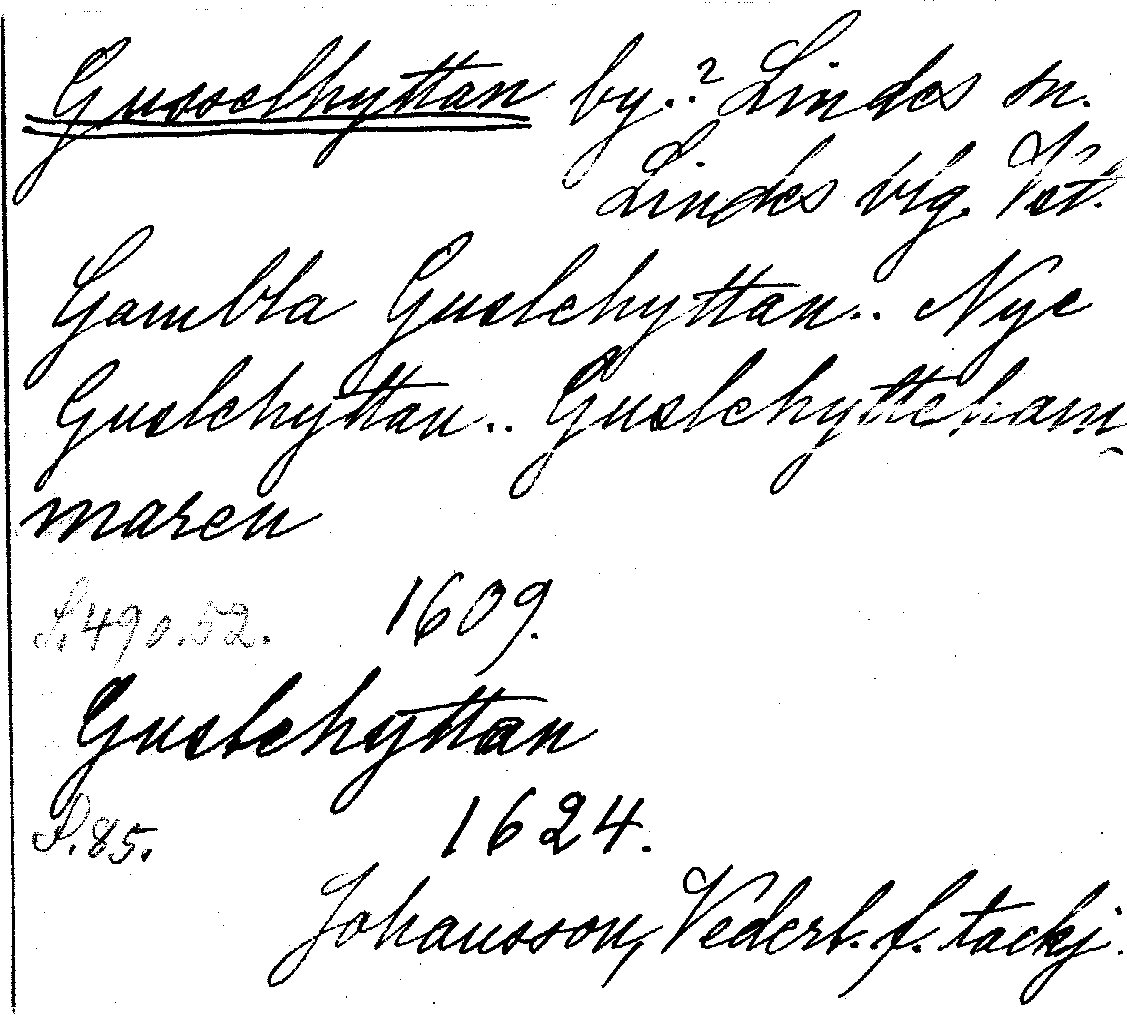 Gusselhyttan by.? Lindes sn.
Lindes blg. Vst.
Gambla Guslehyttan.. Nye
Guslehyttan.. Guslehytteham-
maren
S.490.52. 1609.
Guslehyttan
S.85. 1624.
Johansson, Vederl. f. tackj.